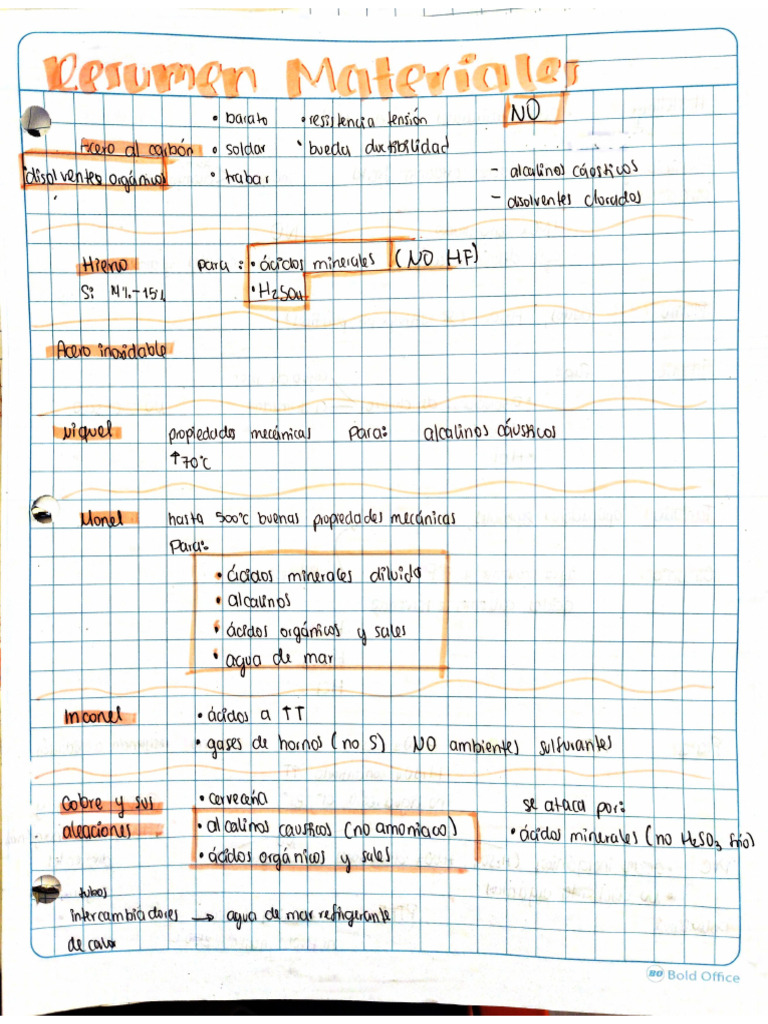 Resumen Materiales
• barato • resistencia tensión NO
Acero al carbón • soldar • bueda ductibilidad
disolventes orgámicos • trabar - alcalinos cáosticos
- disolventes clorados
Hierro para : • ácidos minerales (NO HF)
Si 14%-15% • H2SO4
Acero inoxidable
Niquel propiedades mecánicas Para: alcalinos cáusticos
↑70°C
Monel hasta 500°C buenas propiedades mecánicas
Para:
• ácidos minerales diluido
• alcalinos
• ácidos orgánicos y sales
• agua de mar
Inconel • ácidos a ↑T
• gases de hornos (no S) NO ambientes sulfurantes
Cobre y sus • cerveceria se ataca por:
aleaciones • alcalinos causticos (no amoniaco) • ácidos minerales (no H2SO3 frío)
• ácidos orgánicos y sales
tubos
intercambiadores → agua de mar refrigerante
de calor
BO Bold Office